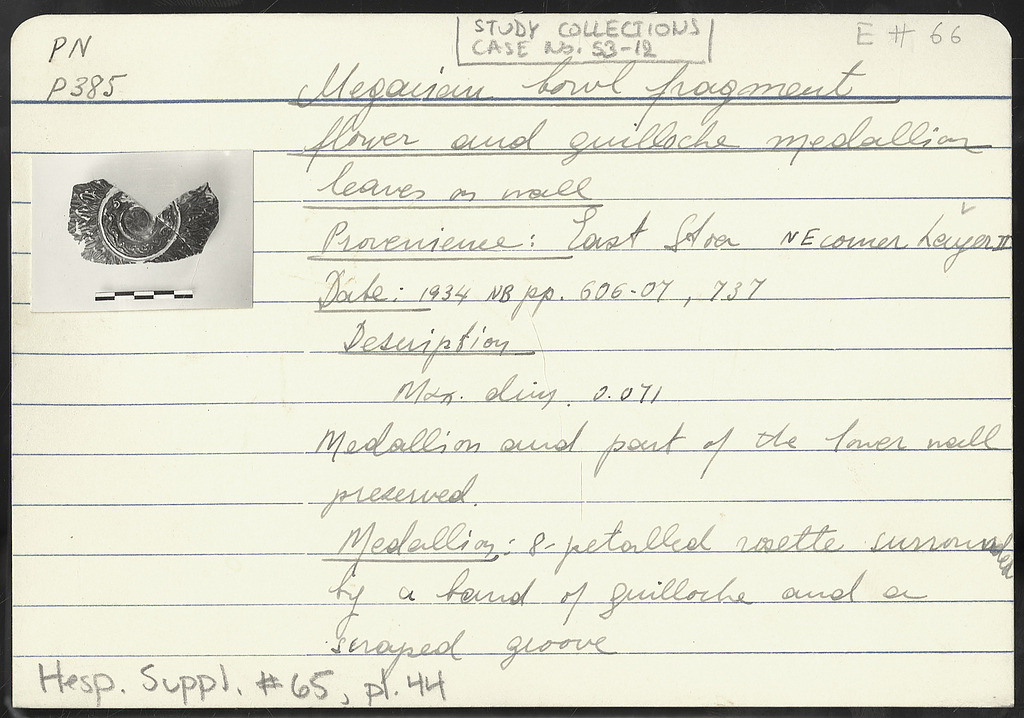 PN
P385
STUDY COLLECTIONS
CASE No. S3-12
E # 66
Megarian bowl fragment
flower and guilloche medallion
leaves on wall
Provenience: East Stoa NE corner Layer II
Date: 1934 NB pp. 606-07, 737
Description
Max. dim. 0.071
Medallion and part of the lower wall
preserved.
Medallion: 8-petalled rosette surrounded
by a band of guilloche and a
scraped groove
Hesp. Suppl. #65, pl. 44